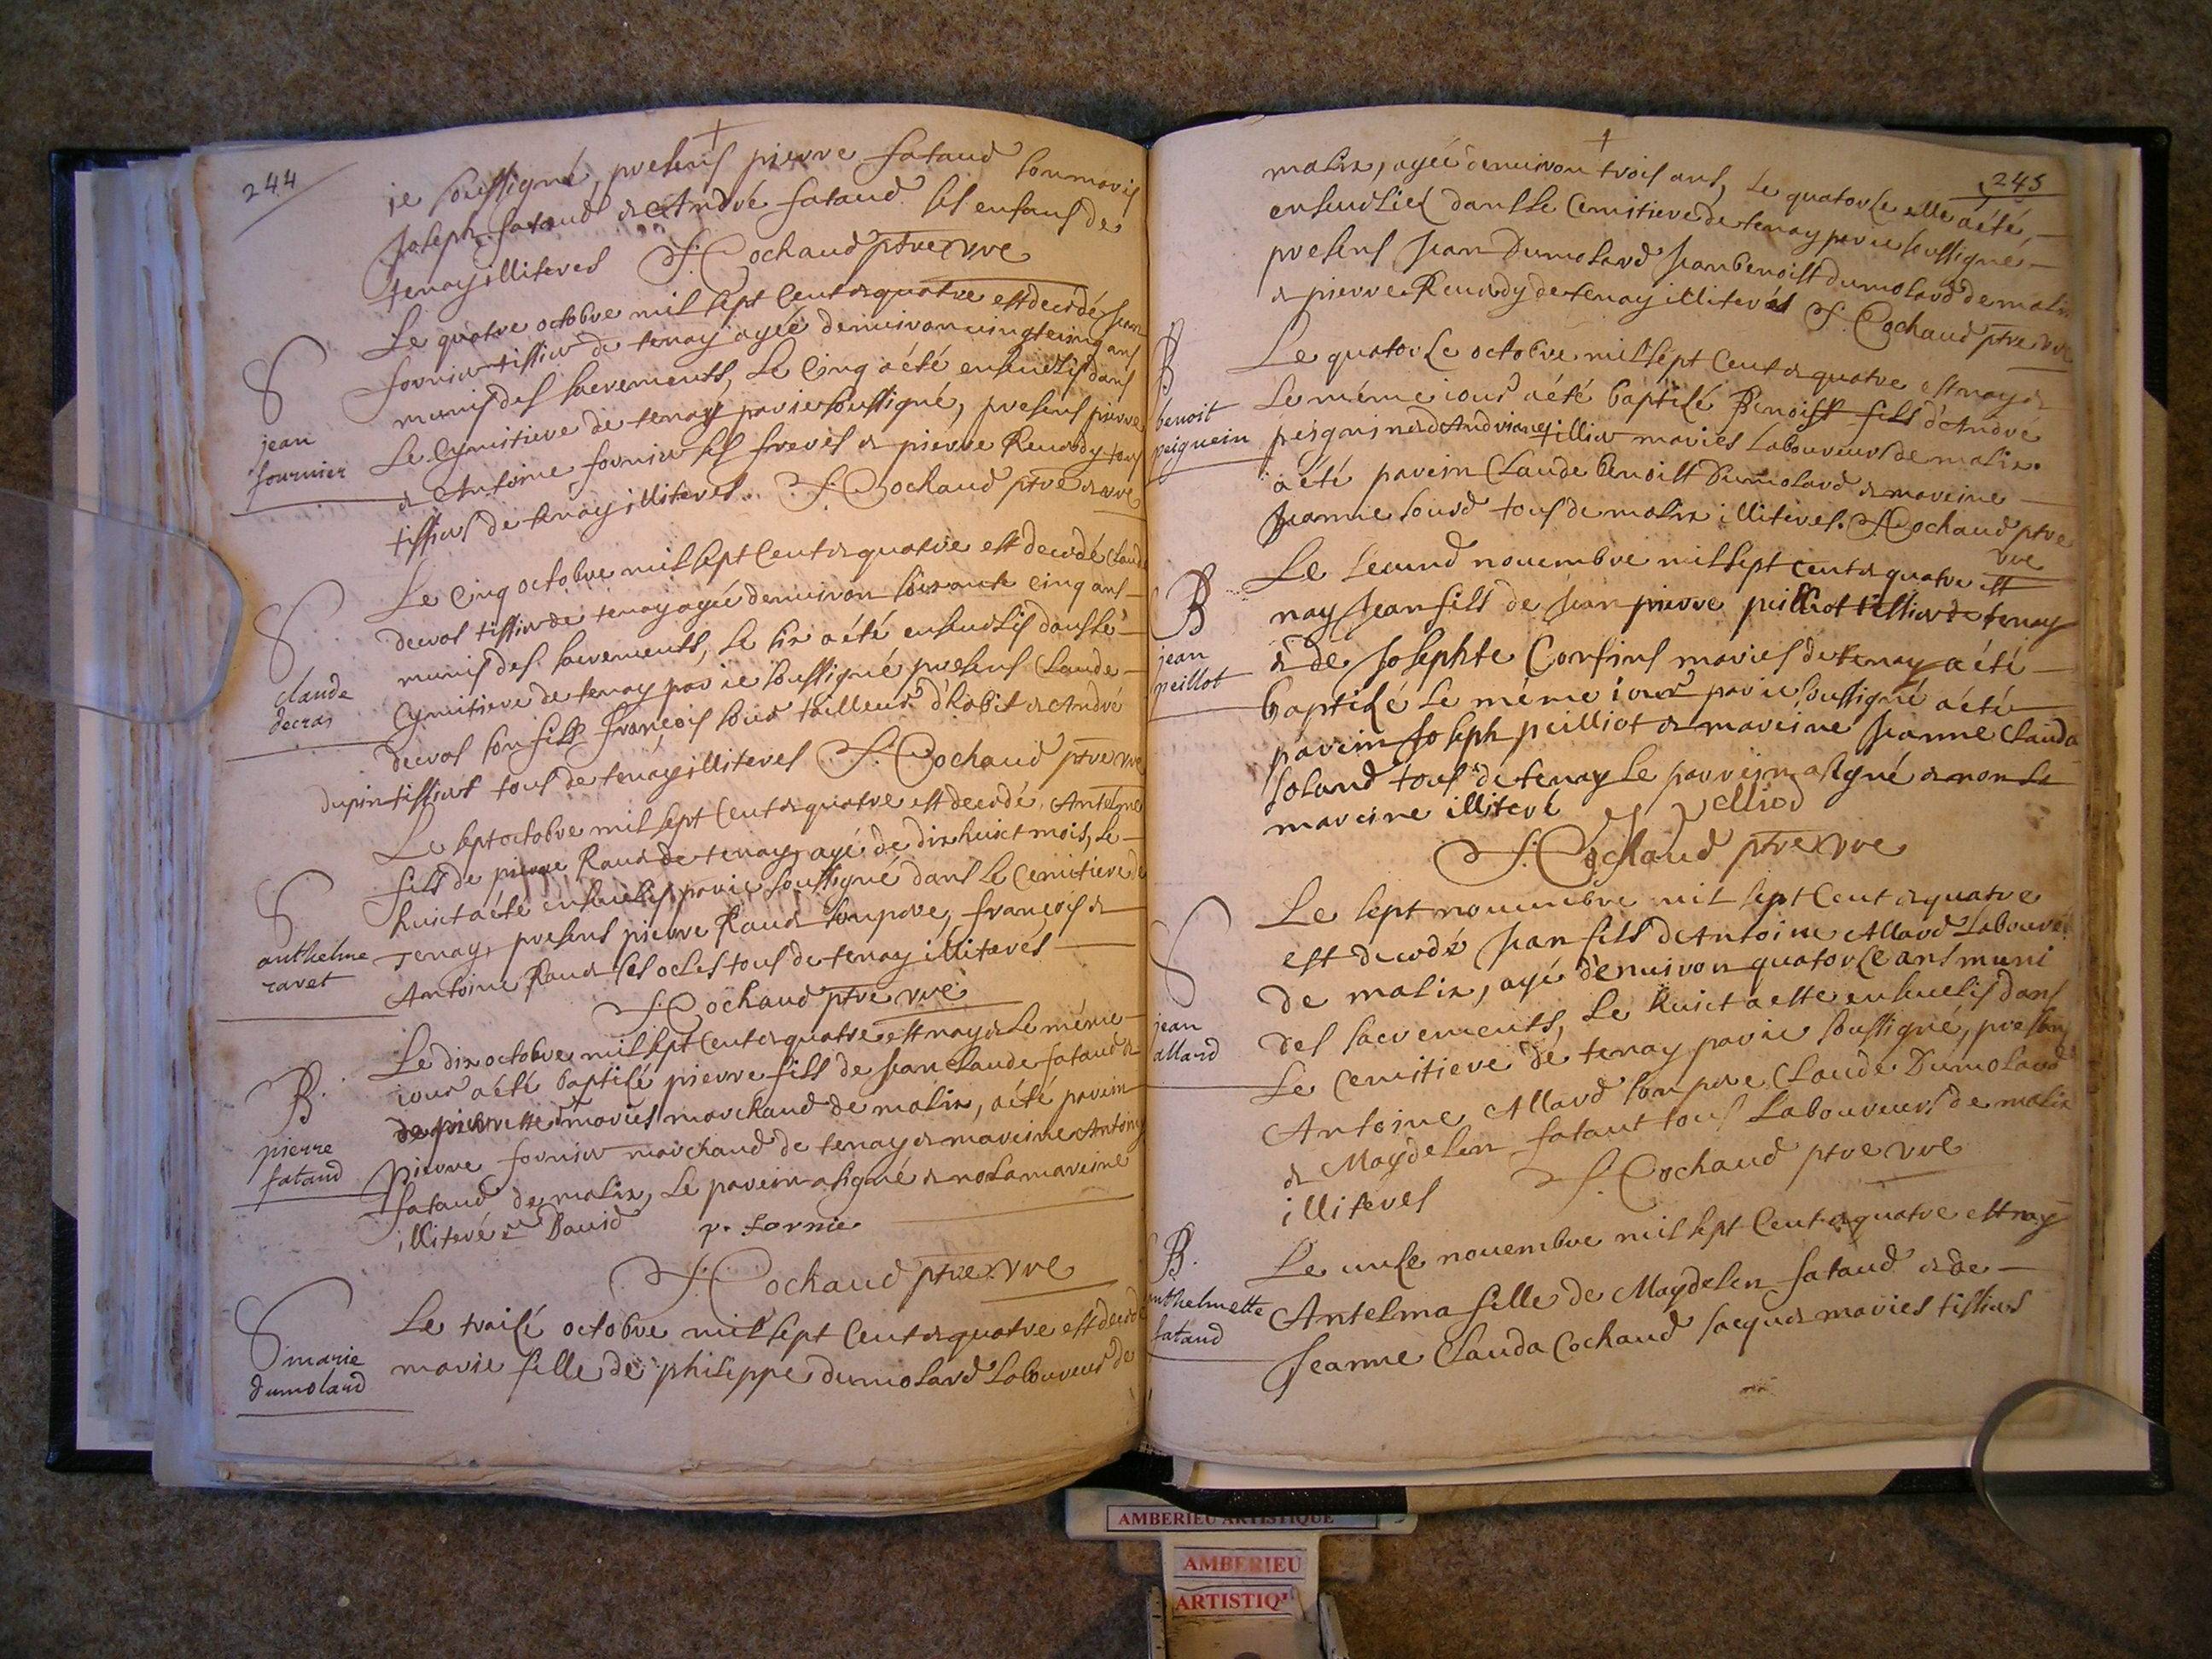 244
je soussigné, presens pierre fataud son maris
Joseph fataud & André fataud ses enfans de
tenay illiteres J. Cochaud ptre vre
Le quatre octobre mil sept Cent & quatre est decedé Jean
fornier tissier de tenay agée denuiron uingt cinq ans
munis des sacrements, Le Cinq a été enseuelis dans
Le Cymitiere de tenay par ie soussigné, presens pierre
& Antoine fornier ses freres & pierre Renody tous
tissiers de tenay illiteres. J. Cochaud ptre & vre
jean
fournier
Le Cinq octobre mil sept Cent & quatre est decedé Claude
decras tissier de tenay agée denuiron soixante Cinq ans
munis des sacrements, Le six a été enseuelis dans Le
Cymitiere de tenay par ie soussigné presens Claude
decras son fils françois sour tailleur d'habit & André
dupin tissiers tous de tenay illiteres J. Cochaud ptre vre
claude
decras
Le sept octobre mil sept Cent & quatre est decedé Antelme
fils de pierre Rauet de tenay, agé de dix huict mois, Le
huict a été enseuelis par ie soussigné dans le Cemitiere de
Tenay, presens pierre Rauet son pere, françois &
Antoine Rauet ses ocles tous de tenay illiteres
J. Cochaud ptre vre
anthelme
ravet
Le dix octobre mil sept Cent & quatre est nay & Le méme
iour a été baptizé pierre fils de Jean Claude fataud &
de pierrette mariés marchand de malix, a été parein
Pierre fornier marchand de tenay & mareine Antoine
fataud de malix, Le parein a signé & no la mareine
illiteré Dauid p. fornie
J. Cochaud ptre vre
B.
pierre
fataud
Le traisé octobre mil sept Cent & quatre est decedé
marie fille de philippe dumolard Laboureur de
marie
dumolard
245
malix, agée denuiron trois ans, Le quatorze elle a été,
enseuelies dans Le Cemitiere de tenay par ie soussigné
presens Jean Dumolard Jean benoist dumolard de malix
& pierre Renody de tenay illiterés J. Cochaud ptre vre
Le quatorze octobre mil sept Cent & quatre est nay &
Le méme iour a été baptizé Benoist fils d'André
peiguin & d'Andriane tillier mariés Laboureurs de malix.
a été parein Claude benoist Dumolard & mareine
Jeanne sourd tous de malix illiteres. J. Cochaud ptre
vre
B
benoit
peiguein
Le second nouembre mil sept cent & quatre est
nay Jean fils de Jean pierre peilliot tissier de tenay
& de Josephte Confins mariés de tenay a été
baptizé Le méme iour par ie soussigné a été
parein Joseph peilliot & mareine Jeanne Clauda
soland tous de tenay Le parrein a signé & non la
mareine illiteré
J. Cochaud ptre vre
B
jean
peillot
Le sept nouembre mil sept Cent & quatre
est decedé Jean fils d'Antoine Allard Laboure
de malix, agé denuiron quatorze ans muni
des sacrements, Le huict a esté enseuelis dans
Le Cemitiere de tenay par ie soussigné, presens
Antoine Allard son pere Claude Dumolard
& Maydelen fataut tous Laboureurs de malix
illiteres J. Cochaud ptre vre
jean
allard
Le unze nouembre mil sept Cent & quatre est nay
Antelma fille de Maydelen fataud & de
Jeanne Clauda Cochaud Jacquet mariés tissiers
B.
anthelmette
fataud
AMBERIEU ARTISTIQUE
AMBERIEU
ARTISTIQU